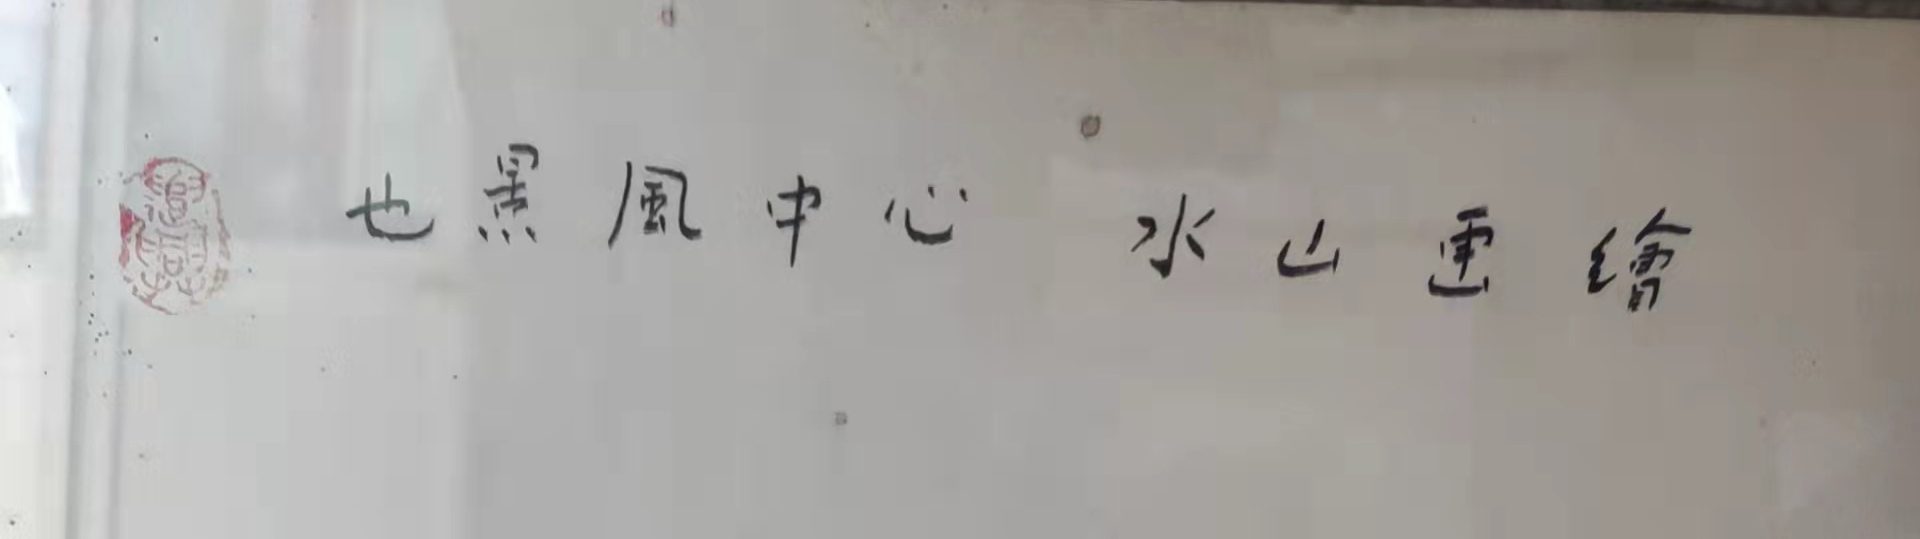 繪運山水 心中風景也